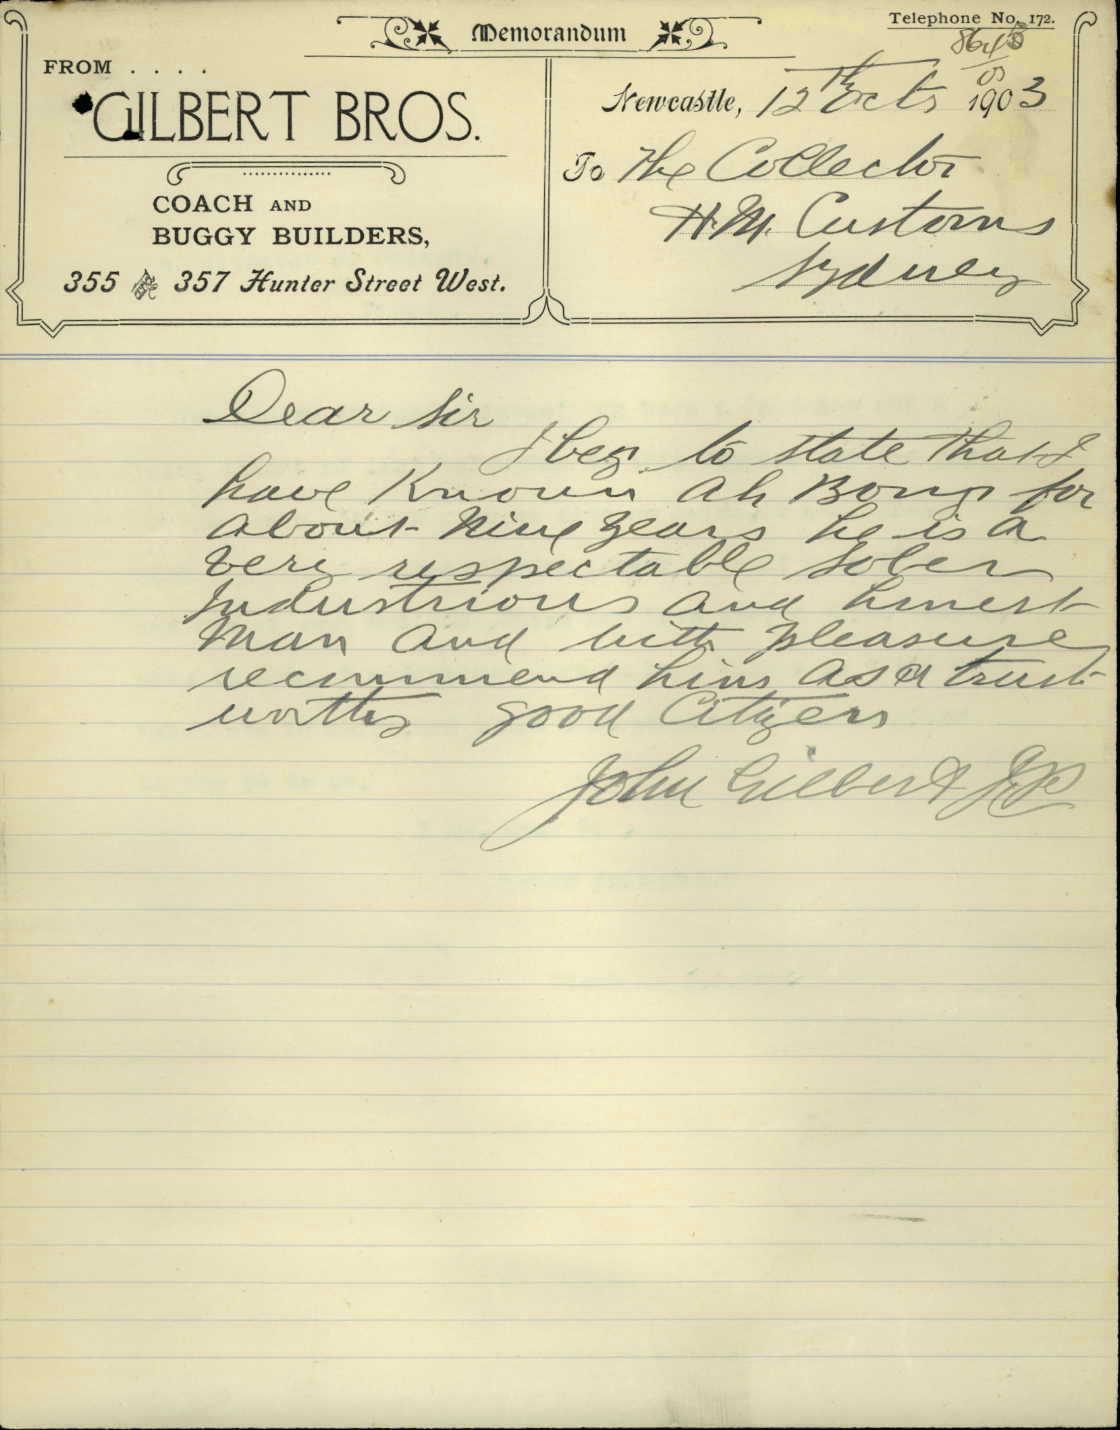 Memorandum
Telephone No. 172.
FROM . . . .
GILBERT BROS.
COACH AND
BUGGY BUILDERS,
355 & 357 Hunter Street West.
Newcastle, 12th Octs 1903
To The Collector
H.M. Customs
Sydney
Dear Sir
I beg to state that I
have Known Ah Bong for
about Nine Years he is a
very respectable sober
Industrious and honest
Man and with pleasure
recommend him as a trust
worthy good Citizen
John Gilbert JP